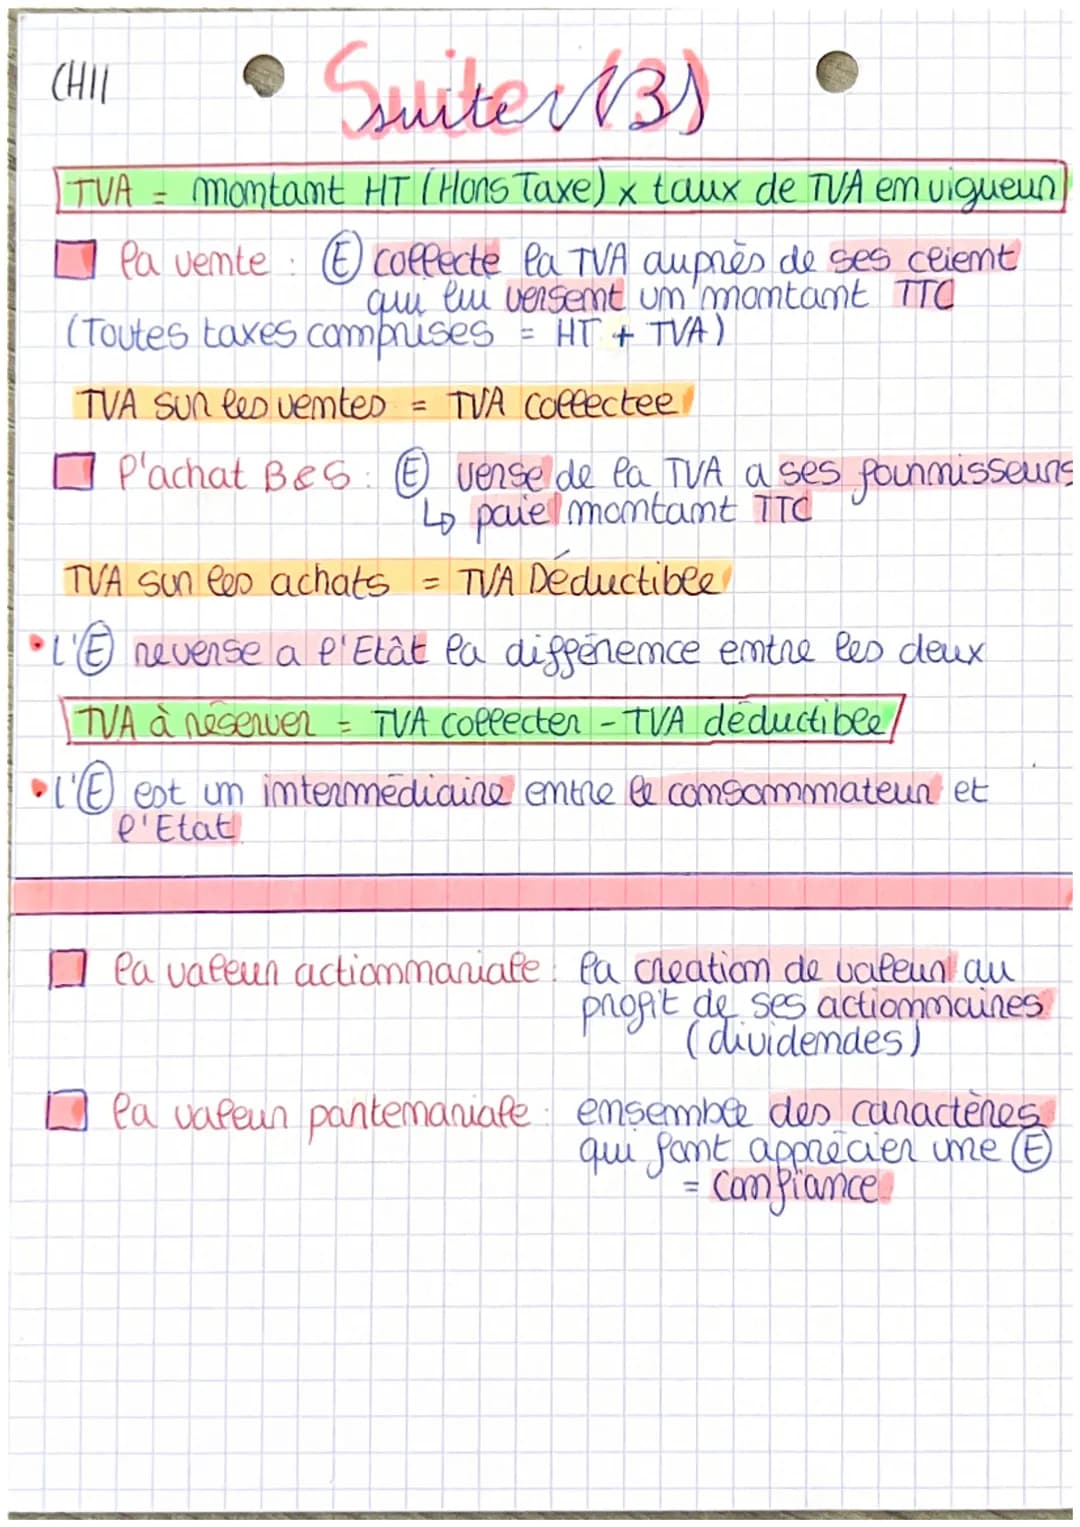 CH11
Suite (3)
TVA = montant HT (Hors Taxe) x taux de TVA en vigueur
la vente : (E) collecte la TVA auprès de ses client
qui lui versent un montant TTC
(Toutes taxes comprises = HT + TVA)
TVA sur les ventes = TVA collectee
l'achat B&S : (E) verse de la TVA a ses fournisseurs
↳ paie montant TTC
TVA sur les achats = TVA Déductible
• L'(E) reverse a l'Etât la différence entre les deux
TVA à réserver = TVA collecter - TVA déductible
• l'(E) est un intermédiaire entre le consommateur et
l'Etat
la valeur actionnariale : la creation de valeur au
profit de ses actionnaires
(dividendes)
la valeur partenariale : ensemble des caractères
qui font apprécier une (E)
= confiance